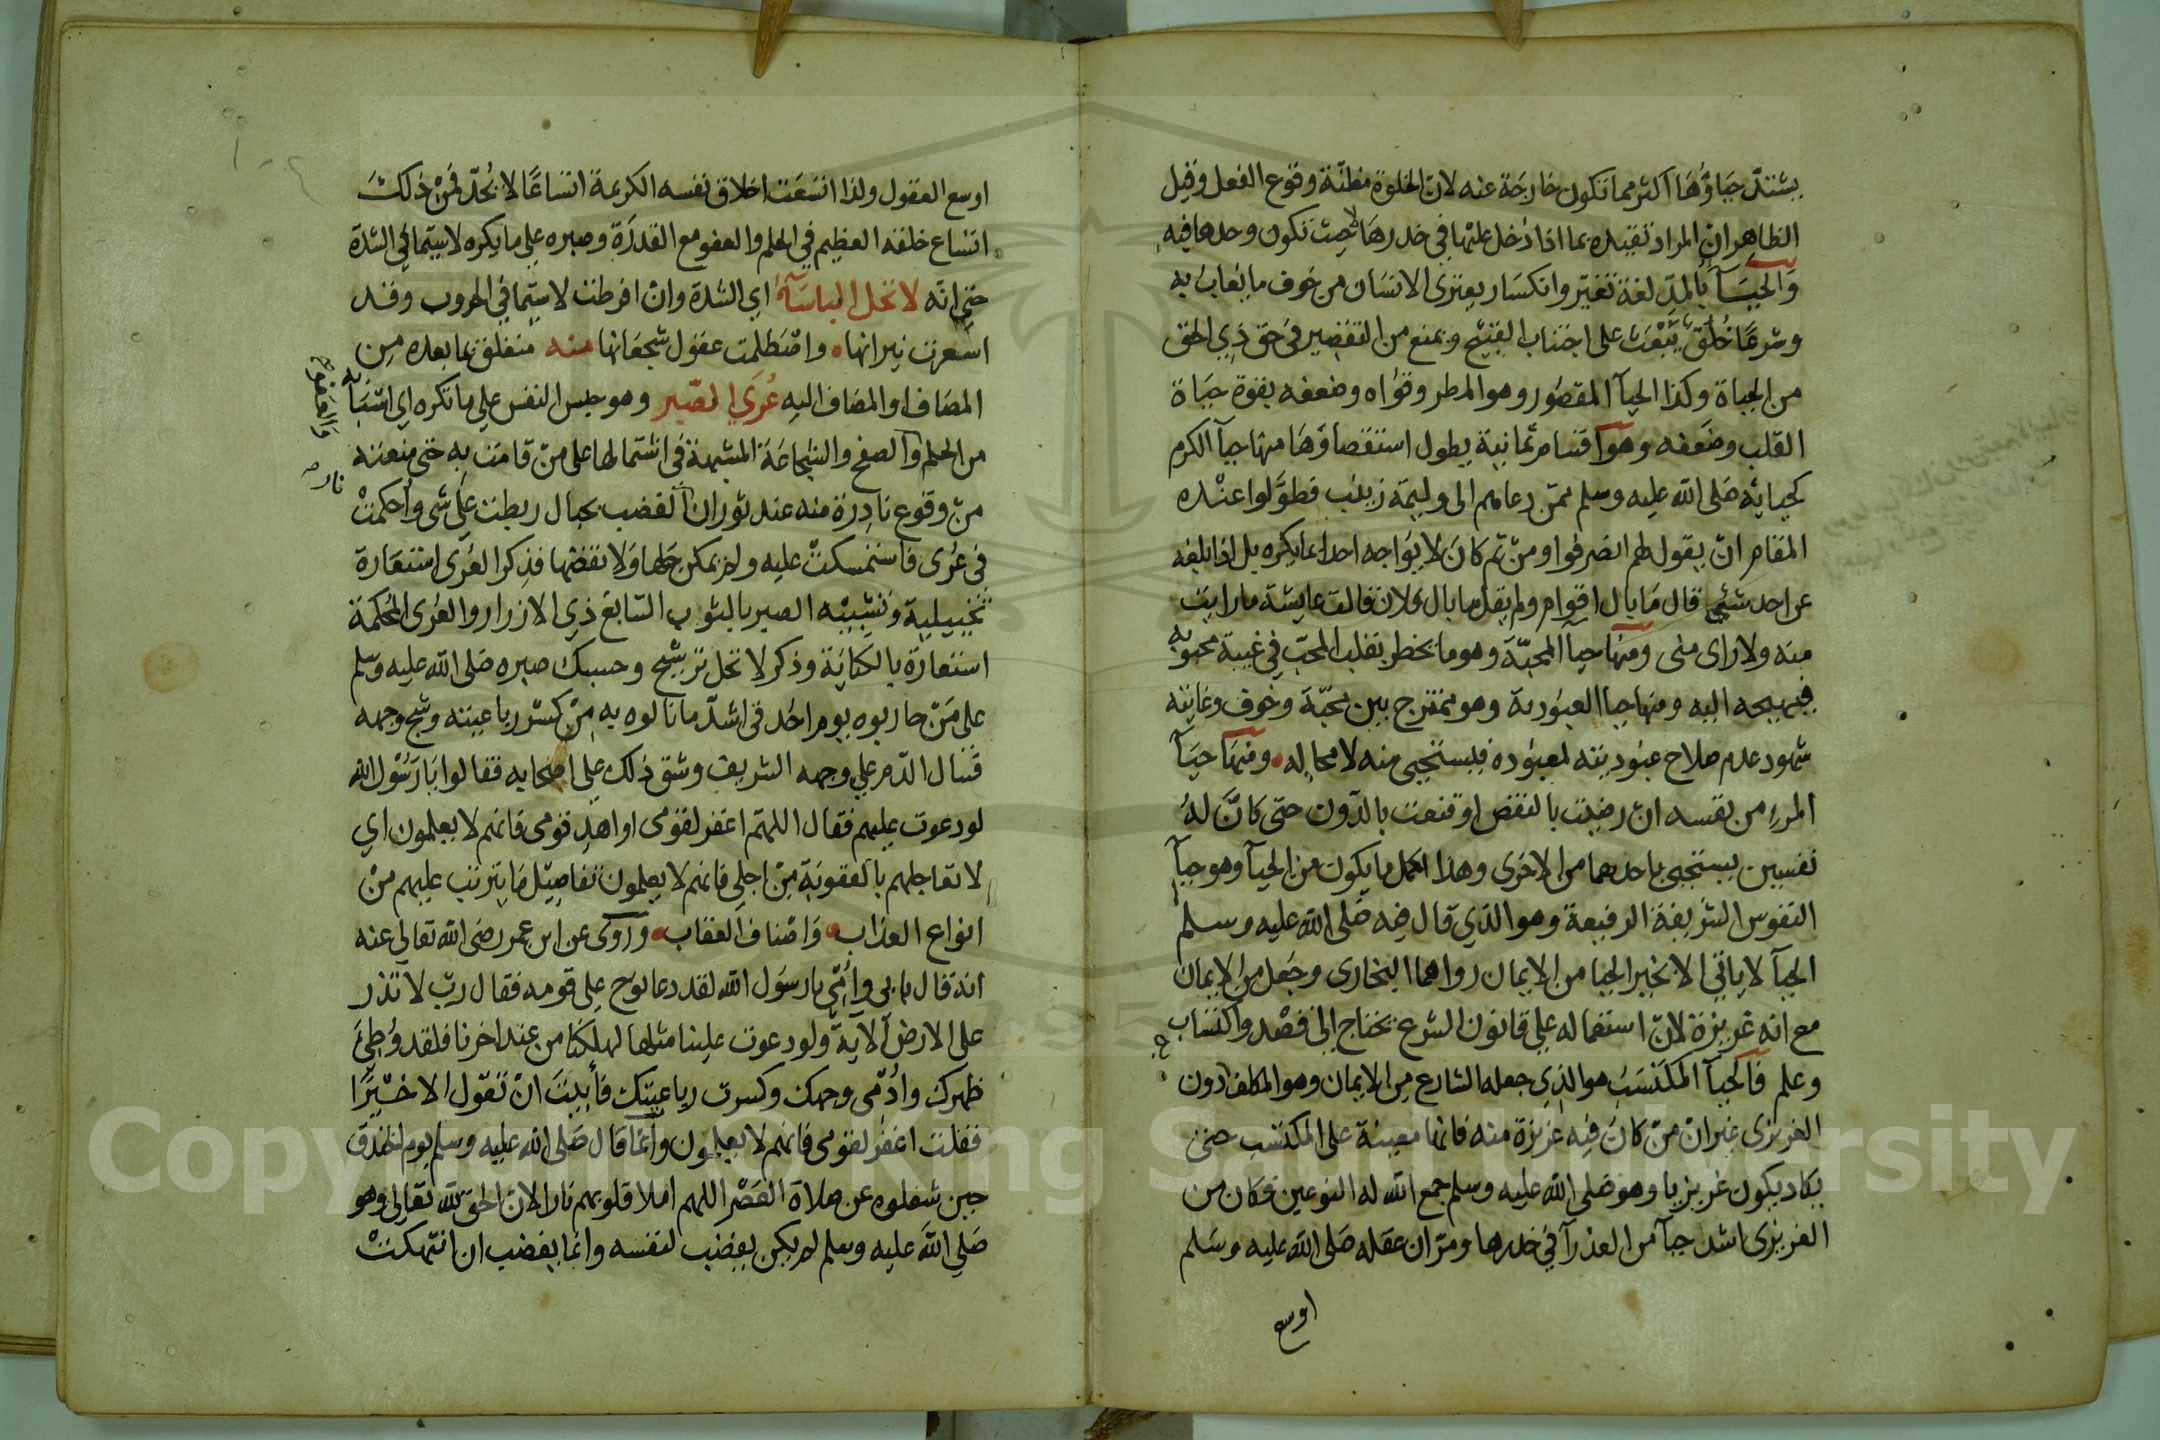 يشتدّ حياؤها اكثر مما تكون خارجة عنه لان الخلوة مظنّة وقوع الفعل وقيل
الظاهر ان المراد تقييده بما اذا دخل عليها في خدرها لا حيث تكون وحدها فيه
والحيآ بالمدّ لغة تغيّر وانكسار يعتري الانسان من خوف ما يُعاب به
وشرعًا خُلُق يَبْعَث على اجتناب القبيح ويمنع من التقصير في حق ذي الحق
من الحياة وكذا الحيآ المقصور وهو المطر وقواه وضعفه بقوة حياة
القلب وضعفه وهو اقسام ثمانية يطول استقصاؤها منها حيآ الكرم
كحيائه صلى الله عليه وسلم ممّن دعاهم الى وليمة زينب فطوّلوا عنده
المقام ان يقول لهم انصرفوا ومن ثم كان لا يُواجه احدا بما يكره بل اذا بلغه
عن احد شئ قال ما بال اقوام ولم يقل ما بال فلان قالت عايشة ما رايت
منه ولا راى منى ومنها حيا المحبّة وهو ما يخطر بقلب المحبّ في غيبة محبوبه
فيهيجه اليه ومنها حيا العبودية وهو ممتزج بين محبّة وخوف وغايته
شهود عدم صلاح عبوديته لمعبوده فيستحيى منه لا محاله ومنها حيآ
المرء من نفسه ان رضيت بالنقص او قنعت بالدّون حتى كانّ لهُ
نفسين يستحيى باحدهما من الاخرى وهذا اكمل ما يكون من الحيآ وهو حيآ
النفوس الشريفة الرفيعة وهو الذي قال فيه صلى الله عليه وسلم
الحيآ لا ياتي الا بخير الحيا من الايمان رواهما البخاري وجعل من الايمان
مع انه غريزة لانّ استعماله على قانون الشرع يحتاج الى قصد واكتساب
وعلم فالحيآ المكتسَب هو الذي جعله الشارع من الايمان وهو المكلف به دون
الغريزى غير ان من كان فيه غريزة منه فانها معينة على المكتسب حتى
يكاد يكون غريزيا وهو صلى الله عليه وسلم جمع الله له النوعين فكان من
الغريزى اشد حيآ من العذرآ في خدرها ومرّ ان عقله صلى الله عليه وسلم
اوسع
اوسع العقول ولذا اتسَعَت اخلاق نفسه الكريمة اتساعًا لا يُحدّ فمِنْ ذلك
اتساع خلقه العظيم في الحلم والعفو مع القدرة وصبره على ما يكره لا سيّما في الشدة
حتى انه لا تحل الباسآءُ اي الشدة وان افرطت لا سيّما في الحروب وقد
استعرت نيرانها واصطلمت عقول شجعانها منه متعلق بما بعده من
المضاف او المضاف اليه عُرَي الصّبر وهو حبس النفس على ما تكره اي اسبابه
من الحلم والصفح والشجاعة المشبهة في اشتمالها على من قامت به حتى منعته
من وقوع نادرة منه عند ثوران الغضب بحبال ربطت على شى وأحكمت
فى عُرى فاستمسكت عليه ولم يمكن حلها ولا نقضها فذكر العُرى استعارة
تخييلية وتشبيه الصبر بالثوب السابغ ذي الازرار والعُرى المُحكمة
استعارة بالكناية وذكر لا تحل ترشيح وحسبك صبره صلى الله عليه وسلم
على مَن حاربوه يوم احُد في اشدّ ما نالوه به من كسْر رباعيته وشج وجهه
فسال الدّم على وجهه الشريف وشق ذلك على اصحابه فقالوا يا رَسُول الله
لو دعوت عليهم فقال اللهمّ اغفر لقومى او اهدِ قومى فانهم لا يعلمون اي
لا تعاجلهم بالعقوبة من اجلى فانهم لا يعلمون تفاصيل ما يترتب عليهم من
انواع العذاب واصناف العقاب وروى عن ابن عمر رضى الله تعالى عنه
انه قال بابى وامّى يا رسول الله لقد دعا نوح على قومه فقال ربّ لا تذر
على الارض الآية ولو دعوت علينا مثلها لهلكنا من عند اخرنا فلقد وُطِئَ
ظهرك وادُمى وجهك وكسرت رباعيتك فأبيت ان تقول الا خيرًا
فقلت اغفر لقومى فانهم لا يعلمون وانما قال صلى الله عليه وسلم يوم الخندق
حين شغلوه عن صلاة العصْر اللهم املا قلوبهم نارا لان الحق لله تعالى وهو
صلى الله عليه وسلم لم يكن يغضب لنفسه وانما يغضب ان انتهكتْ
والعفو
Copyright © King Saud University
1957